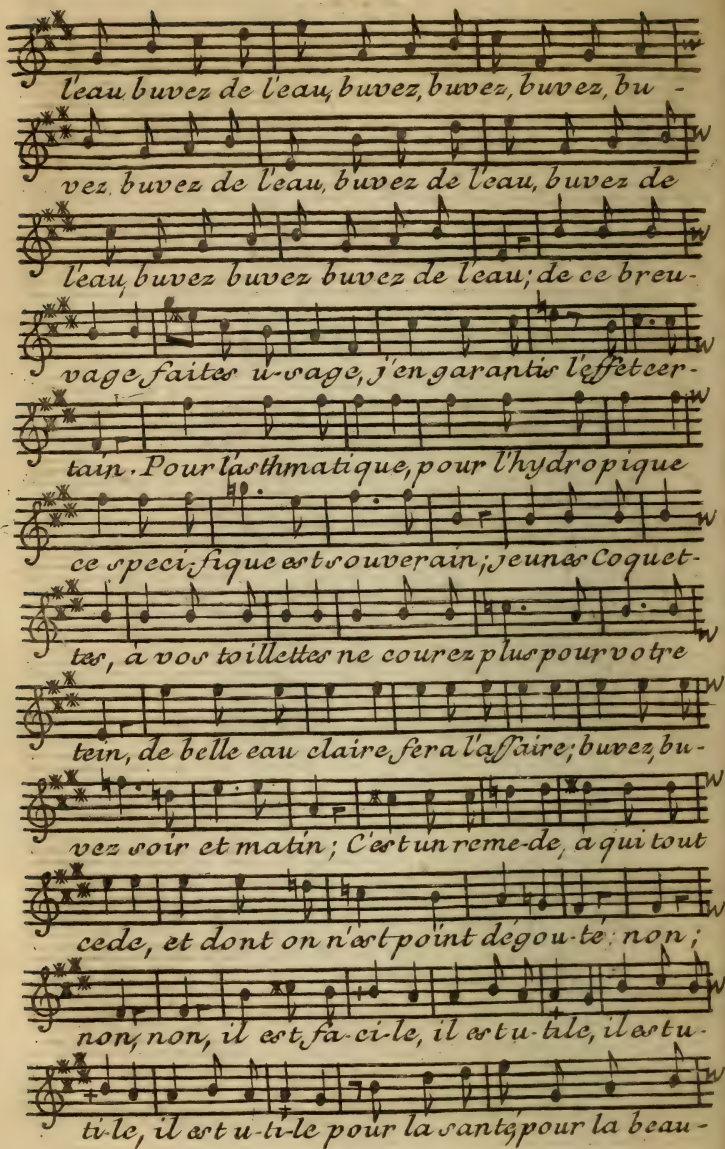 l'eau, buvez de l'eau, buvez, buvez, buvez, bu -
vez, buvez de l'eau, buvez de l'eau, buvez de
l'eau, buvez buvez buvez de l'eau; de ce breu-
vage faites u-sage, j'en garantis l'effet cer-
tain. Pour l'asthmatique, pour l'hydropique
ce speci-fique est souverain; jeunes Coquet-
tes, à vos toillettes ne courez plus pour votre
tein, de belle eau claire fera l'affaire; buvez, bu-
vez soir et matin; C'est un reme-de, à qui tout
cede, et dont on n'est point dégou-té: non;
non, non, il est fa-ci-le, il est u-tile, il est u-
ti-le, il est u-ti-le pour la santé, pour la beau-